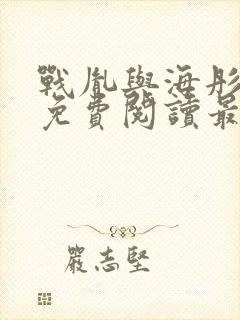 戰胤與海彤
免費閱讀最
嚴志堅